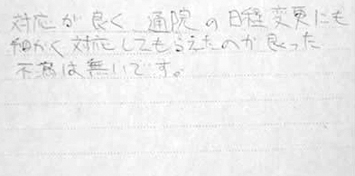 対応が良く 通院の日程変更にも
細かく対応してもらえたのが良った
不満は無いです。